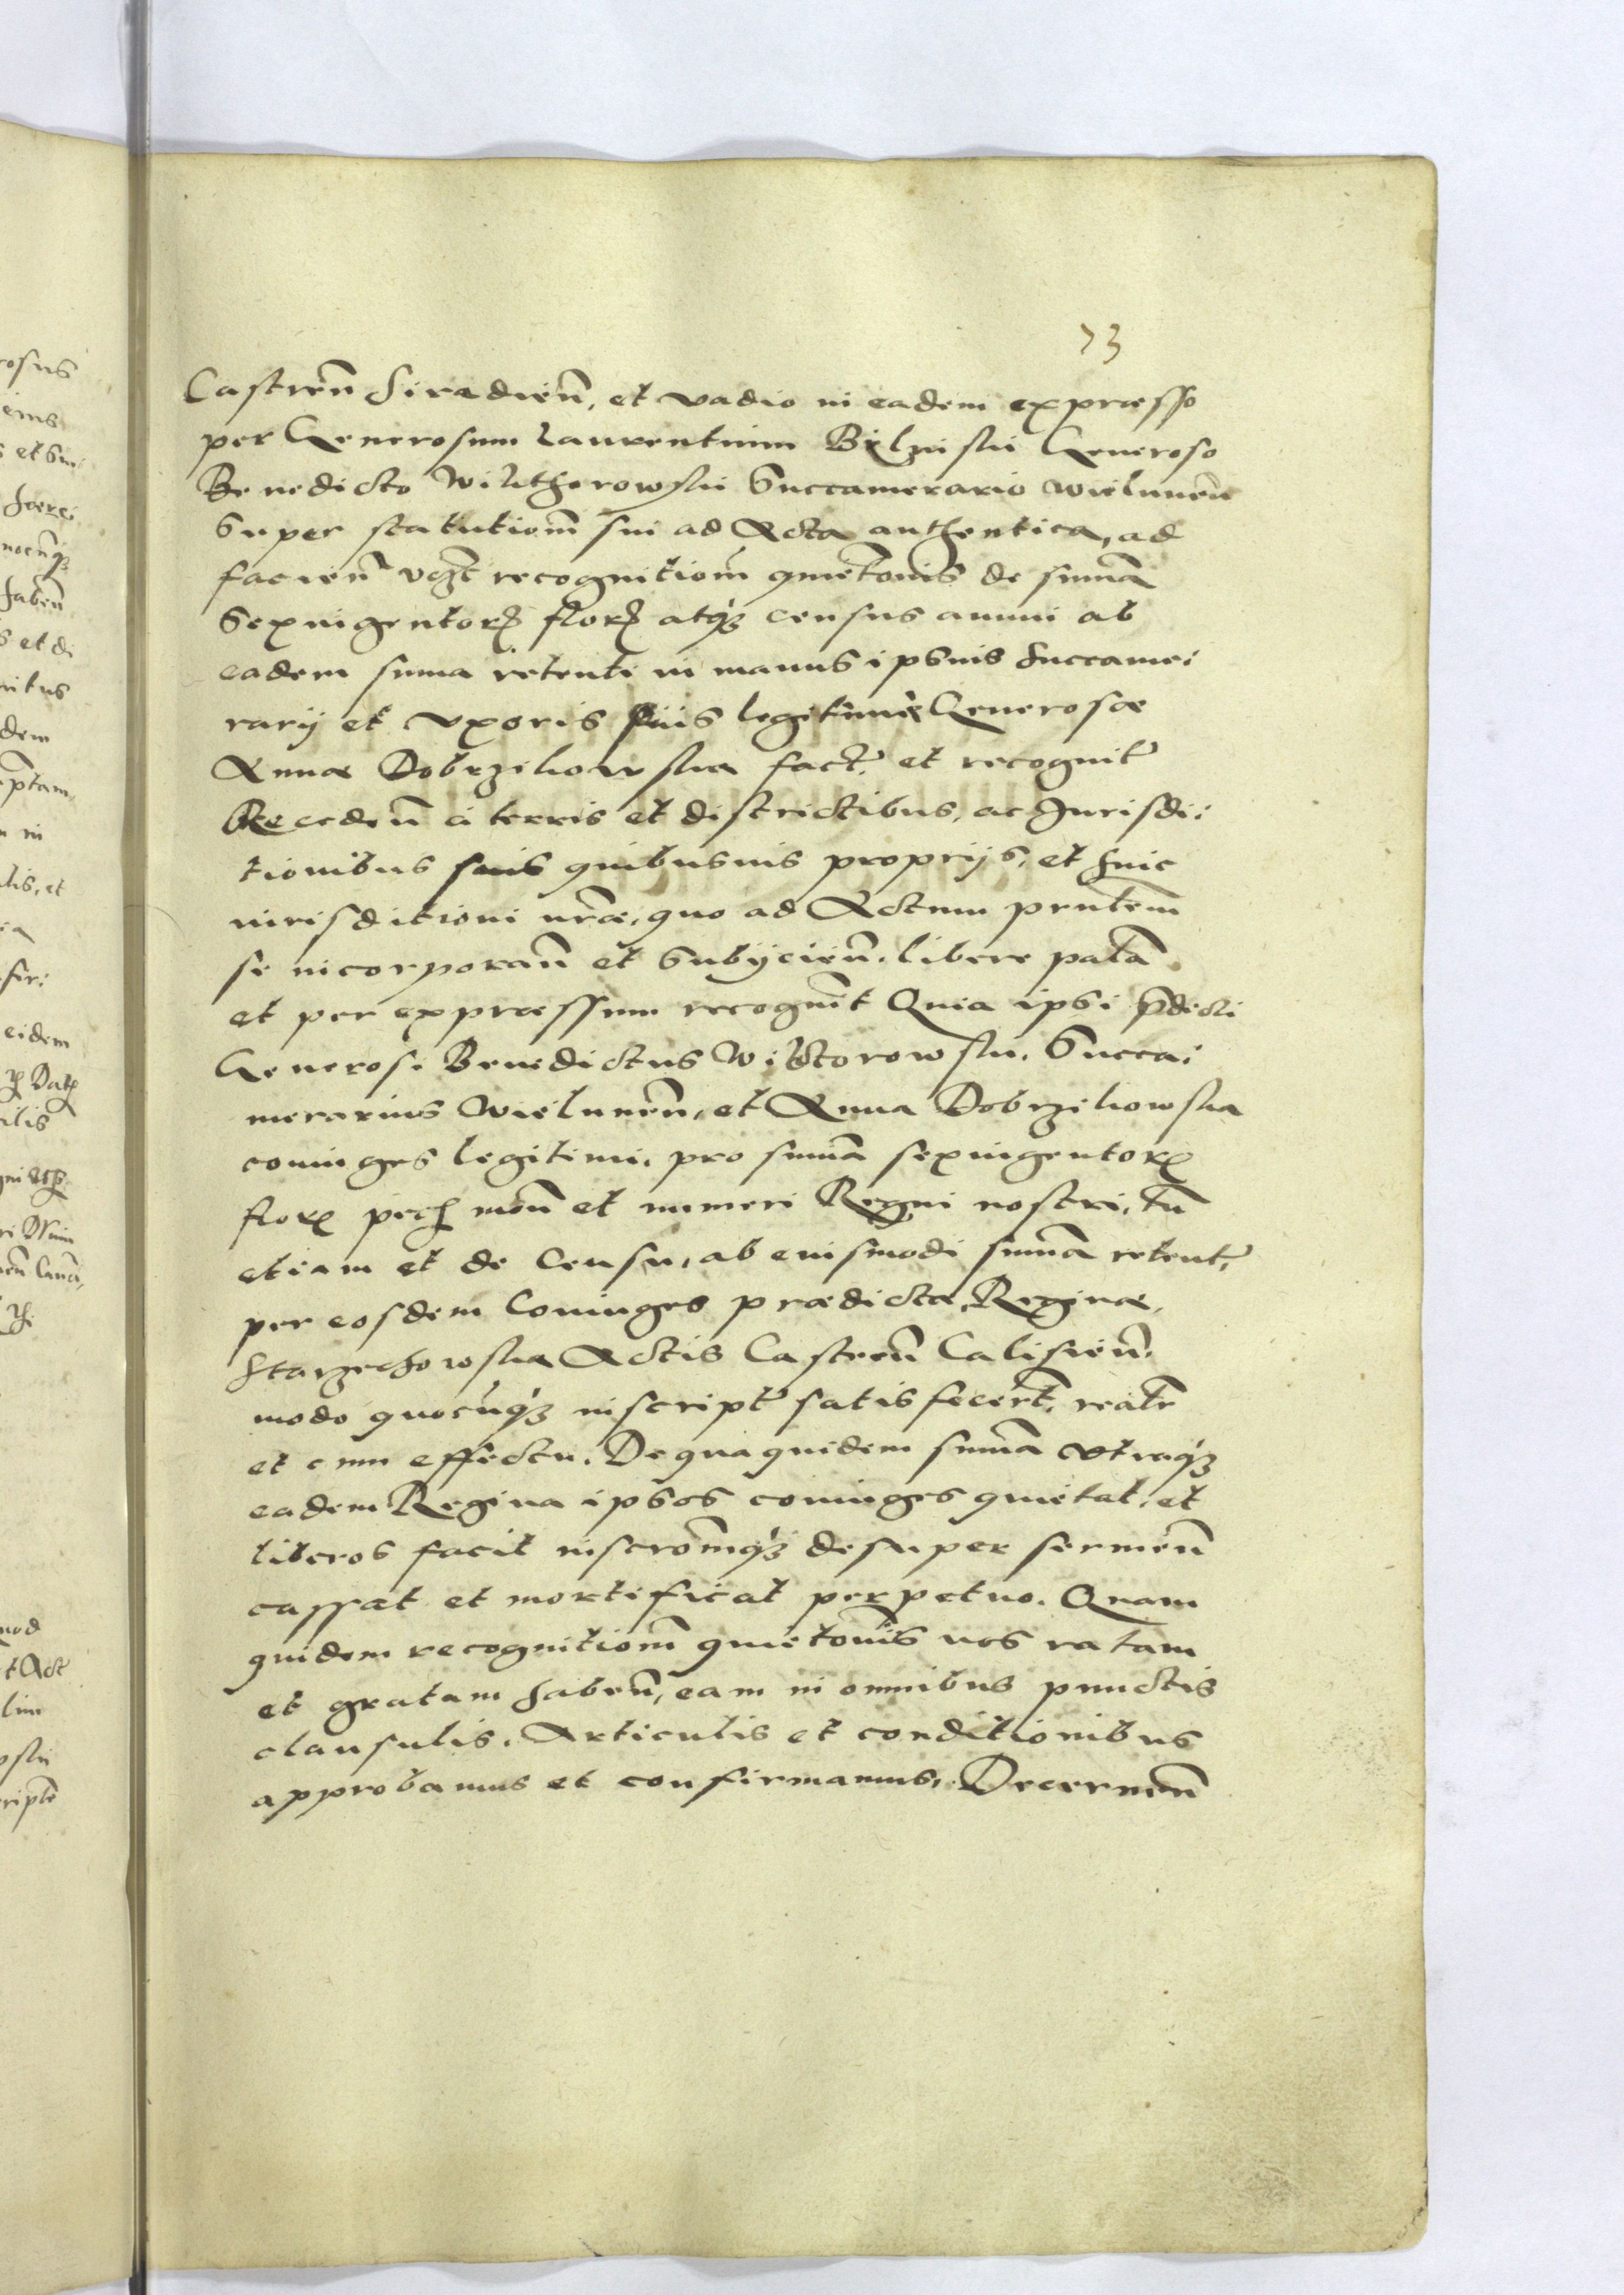 73
Castren̄ Siradien̄, et vadio in eadem expraesso
per Generosum Laurentium Bilzinski Generoso
Benedicto Wikthorowski Succamerario Wielunen̄
super statutiom̄ sui ad Acta authentica, ad
facien̄ recognitiom̄ quietōnis de summa
sexingentorꝝ florꝝ atqꝫ census annui ab
eadem suma retenti in manus ipsius Succame
rarij et uxoris suis legitimae Generosae
Annae Dobrzikowska fact̄ et recognit̄
Receden̄ a terris et districtibus, ac Jurisdi
tionibus suis quibusuis proprijs, et huic
iurisditioni nr̄ae, quo ad Actum pr̄ntem
se incorporan̄ et subijcien̄, libere palā
et per expraessum recognit Quia ipsi p̄dicti
Generosi Benedictus Wiktorowski Succa
merarius Wielunen̄, et Anna Dobrzikowska
coniuges legitimi, pro summa sexingentorꝝ
florꝝ pecꝭ mon̄ et numeri Regni nostri, tū
etiam et de Censu, ab eiusmodi summa retent̄
per eosdem Coniuges praedictae Reginae
Starzechowska Actis Castren̄ Calisien̄
modo quocūqꝫ inscript̄ satisfecerūt, realr̄
et cum effectu. De qua quidem summa utraqꝫ
eadem Regina ipsos coniuges quietat, et
liberos facit inscrōmqꝫ desuper sermen̄
cassat et mortificat perpetuo. Quam
quidem recognitiom̄ quietōnis nos ratam
et gratam haben̄, eam in omnibus punctis
clausulis, Articulis et conditionibus
approbamus et confirmamus, Decernen̄